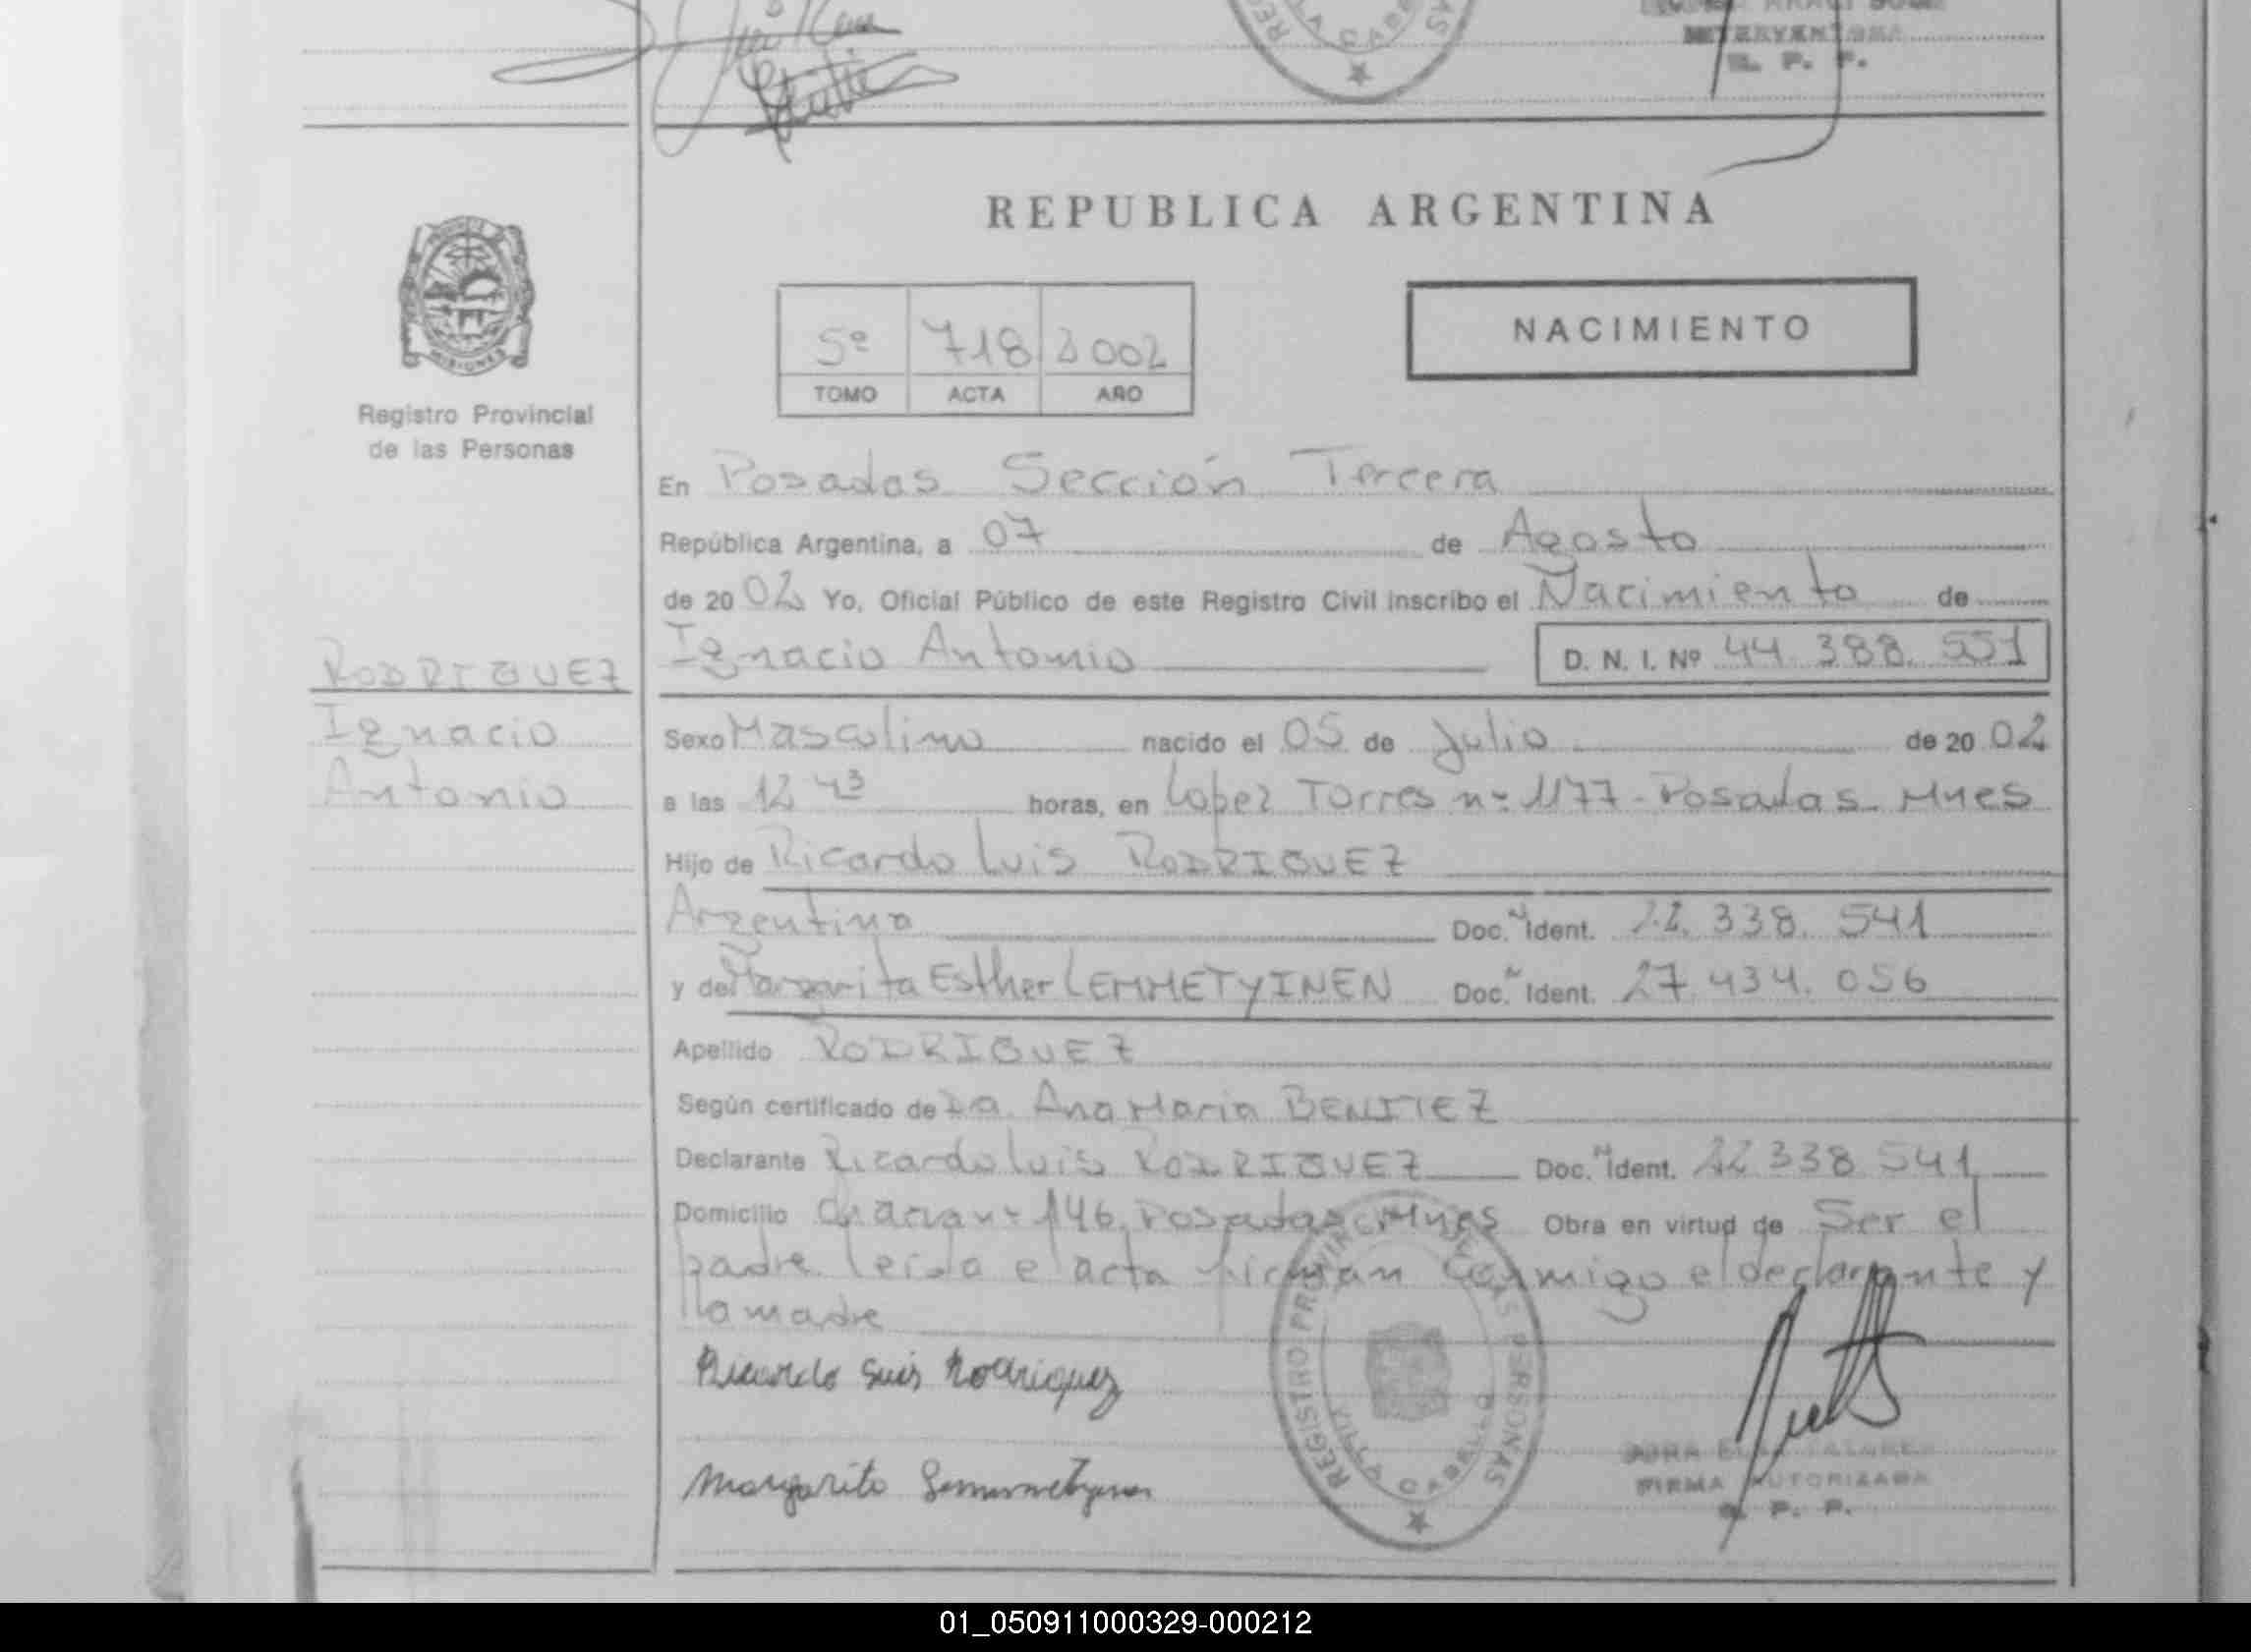 INTERVENTORA
R. P. P.
REPUBLICA ARGENTINA
5º 718 2002
TOMO ACTA AÑO
NACIMIENTO
MISIONES
Registro Provincial
de las Personas
En Posadas Sección Tercera
República Argentina, a 07 de Agosto
de 2002 Yo, Oficial Público de este Registro Civil inscribo el Nacimiento de
Ignacio Antonio D. N. I. Nº 44.388.551
RODRIGUEZ
Ignacio
Antonio
Sexo Masculino nacido el 05 de Julio de 2002
a las 12 43 horas, en Lopez Torres nº 1177 - Posadas Mnes
Hijo de Ricardo Luis RODRIGUEZ
Argentino Doc. N Ident. 22.338.541
y de Margarita Esther LEMMETYINEN Doc. N Ident. 27.434.056
Apellido RODRIGUEZ
Según certificado de Dra. Ana Maria BENITEZ
Declarante Ricardo Luis RODRIGUEZ Doc. N Ident. 22 338 541
Domicilio nº 146. Posadas Mnes Obra en virtud de Ser el
padre leida el acta firman conmigo el declarante y
la madre
Ricardo Luis Rodriguez
Margarita Lemmetyinen
REGISTRO PROVINCIAL DE LAS PERSONAS
FIRMA AUTORIZADA
R. P. P.
01_050911000329-000212